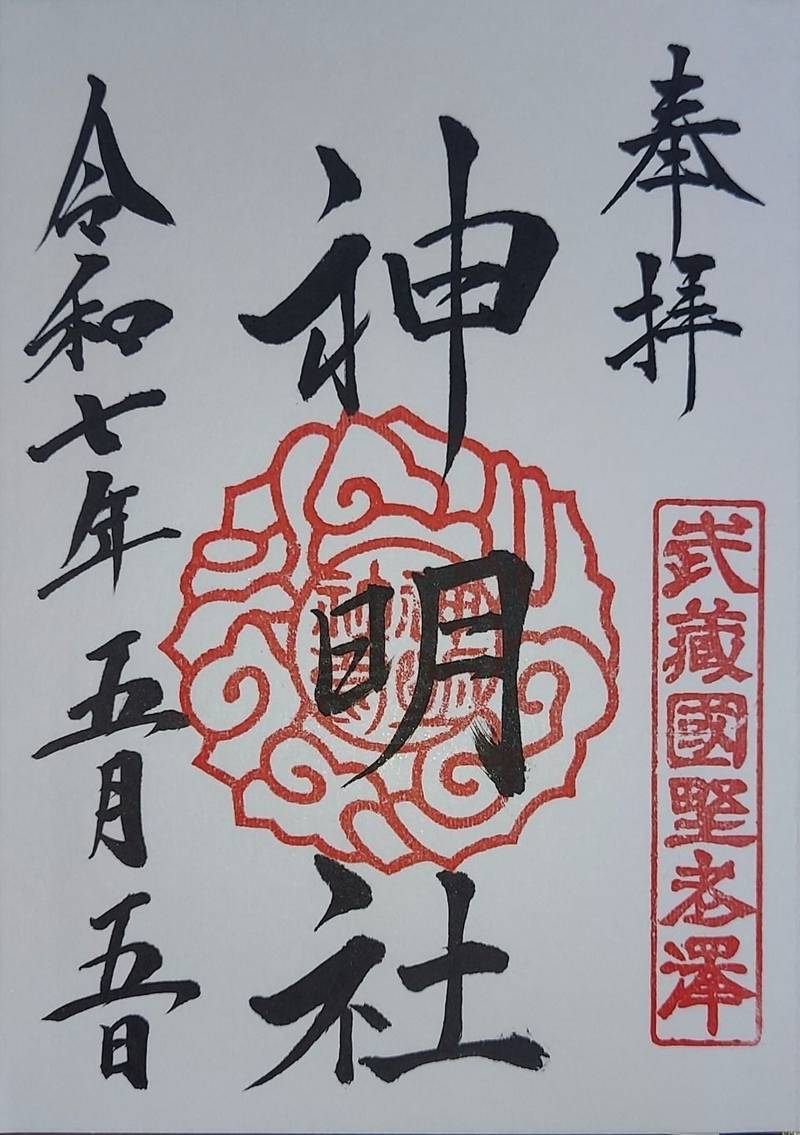 奉拝
武藏國野老澤
神明社
令和七年五月五日